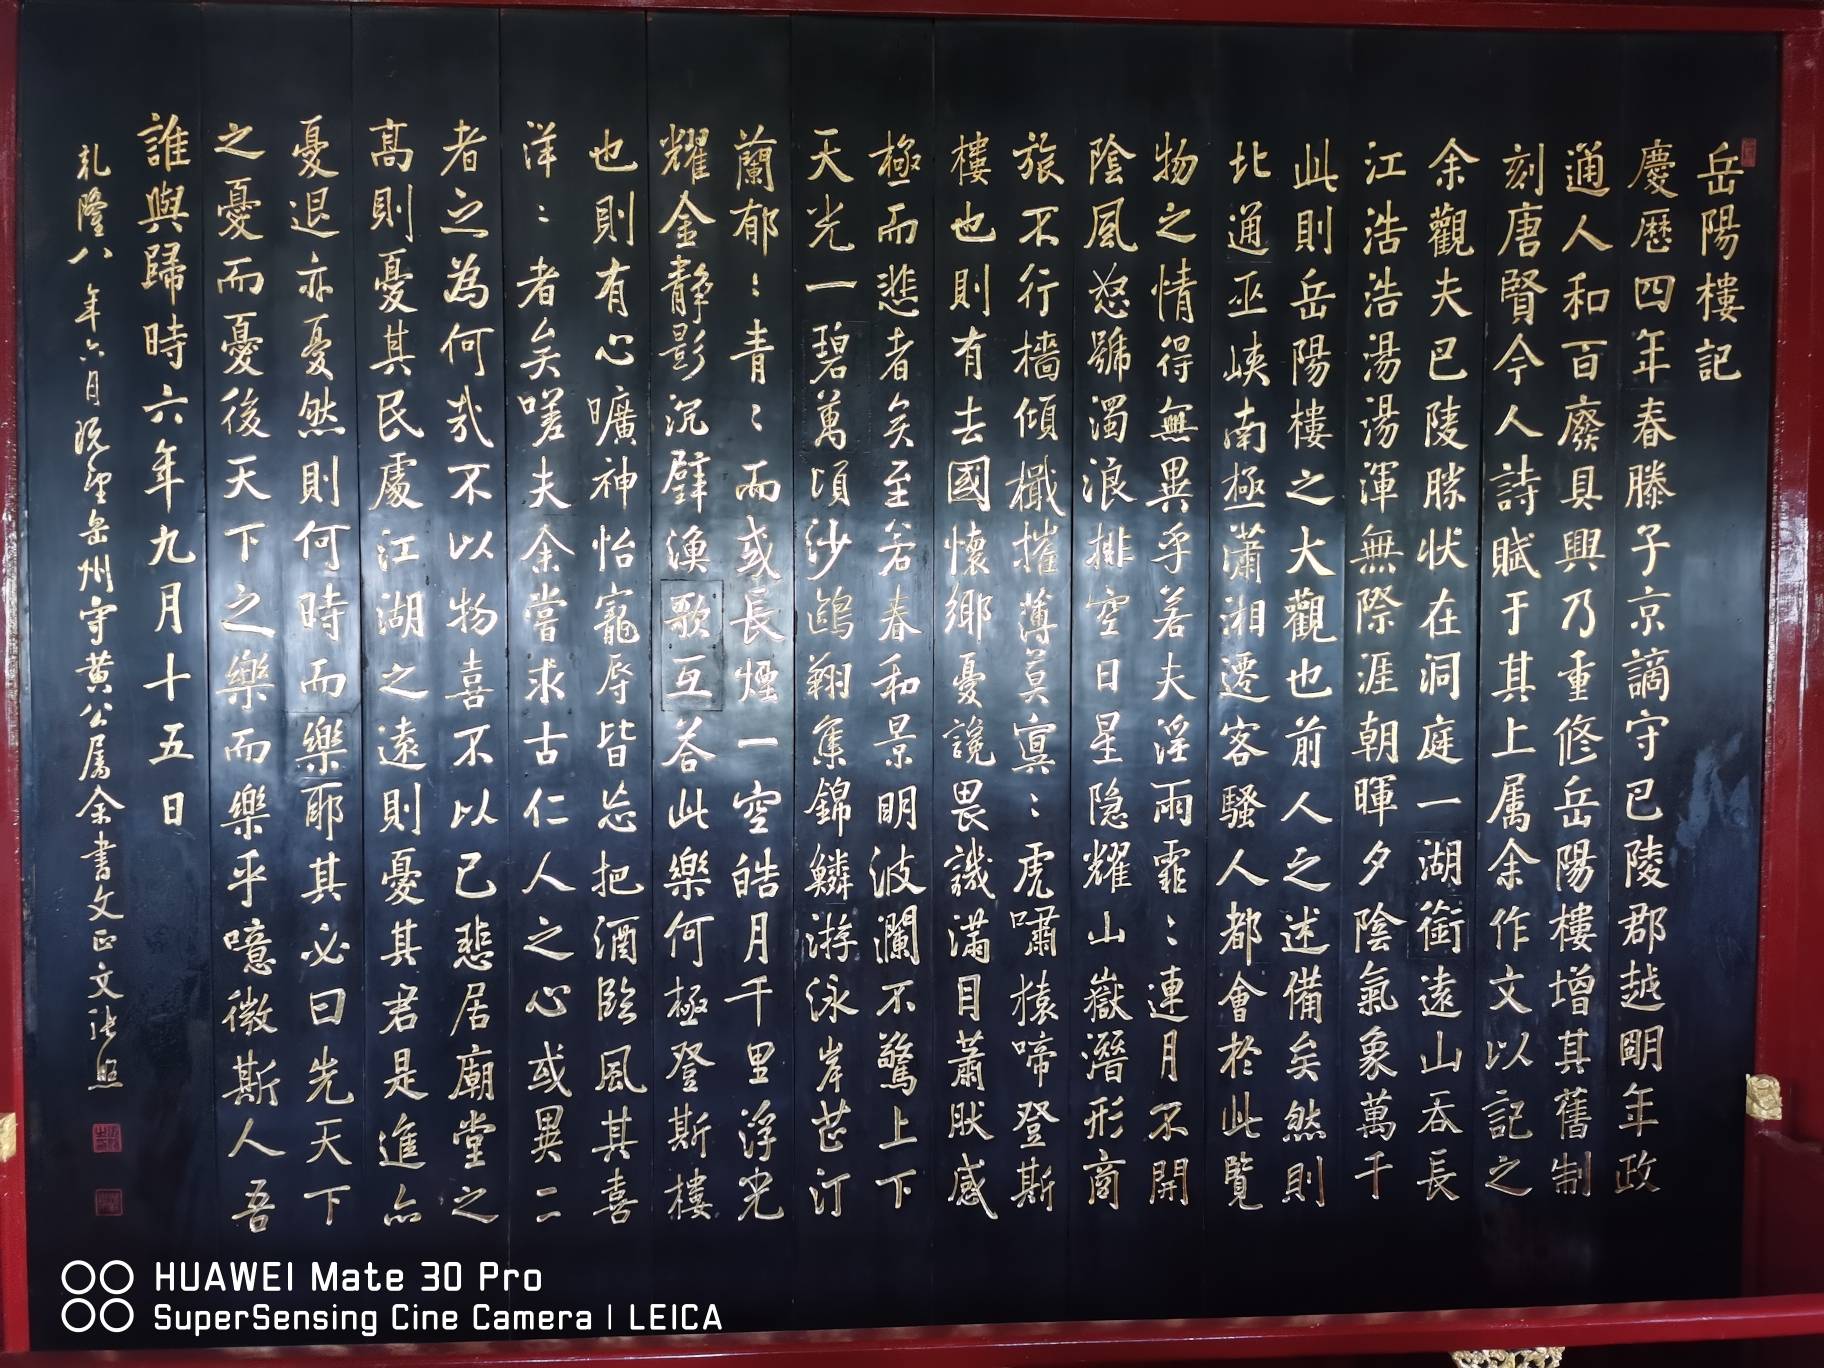 岳陽樓記
慶曆四年春滕子京謫守巴陵郡越明年政
通人和百廢具興乃重修岳陽樓增其舊制
刻唐賢今人詩賦于其上属余作文以記之
余觀夫巴陵勝状在洞庭一湖銜遠山吞長
江浩浩湯湯渾無際涯朝暉夕陰氣象萬千
此則岳陽樓之大觀也前人之述備矣然則
北通巫峽南極瀟湘遷客騷人都會於此覽
物之情得無異乎若夫淫雨霏〻連月不開
陰風怒號濁浪排空日星隐耀山嶽潛形商
旅不行檣傾檝摧薄莫冥〻虎嘯猿啼登斯
樓也則有去國懷鄉憂讒畏譏滿目蕭肰感
極而悲者矣至若春和景明波瀾不驚上下
天光一碧萬頃沙鷗翔集錦鱗游泳岸芷汀
蘭郁〻青〻而或長煙一空皓月千里浮光
耀金静影沉璧漁歌互荅此樂何極登斯樓
也則有心曠神怡寵辱皆忘把酒臨風其喜
洋〻者矣嗟夫余嘗求古仁人之心或異二
者之為何哉不以物喜不以己悲居廟堂之
高則憂其民處江湖之遠則憂其君是進亦
憂退亦憂然則何時而樂耶其必曰先天下
之憂而憂後天下之樂而樂乎噫微斯人吾
誰與歸時六年九月十五日
乹隆八年六月既望岳州守黄公属余書文正文張照
HUAWEI Mate 30 Pro
SuperSensing Cine Camera | LEICA